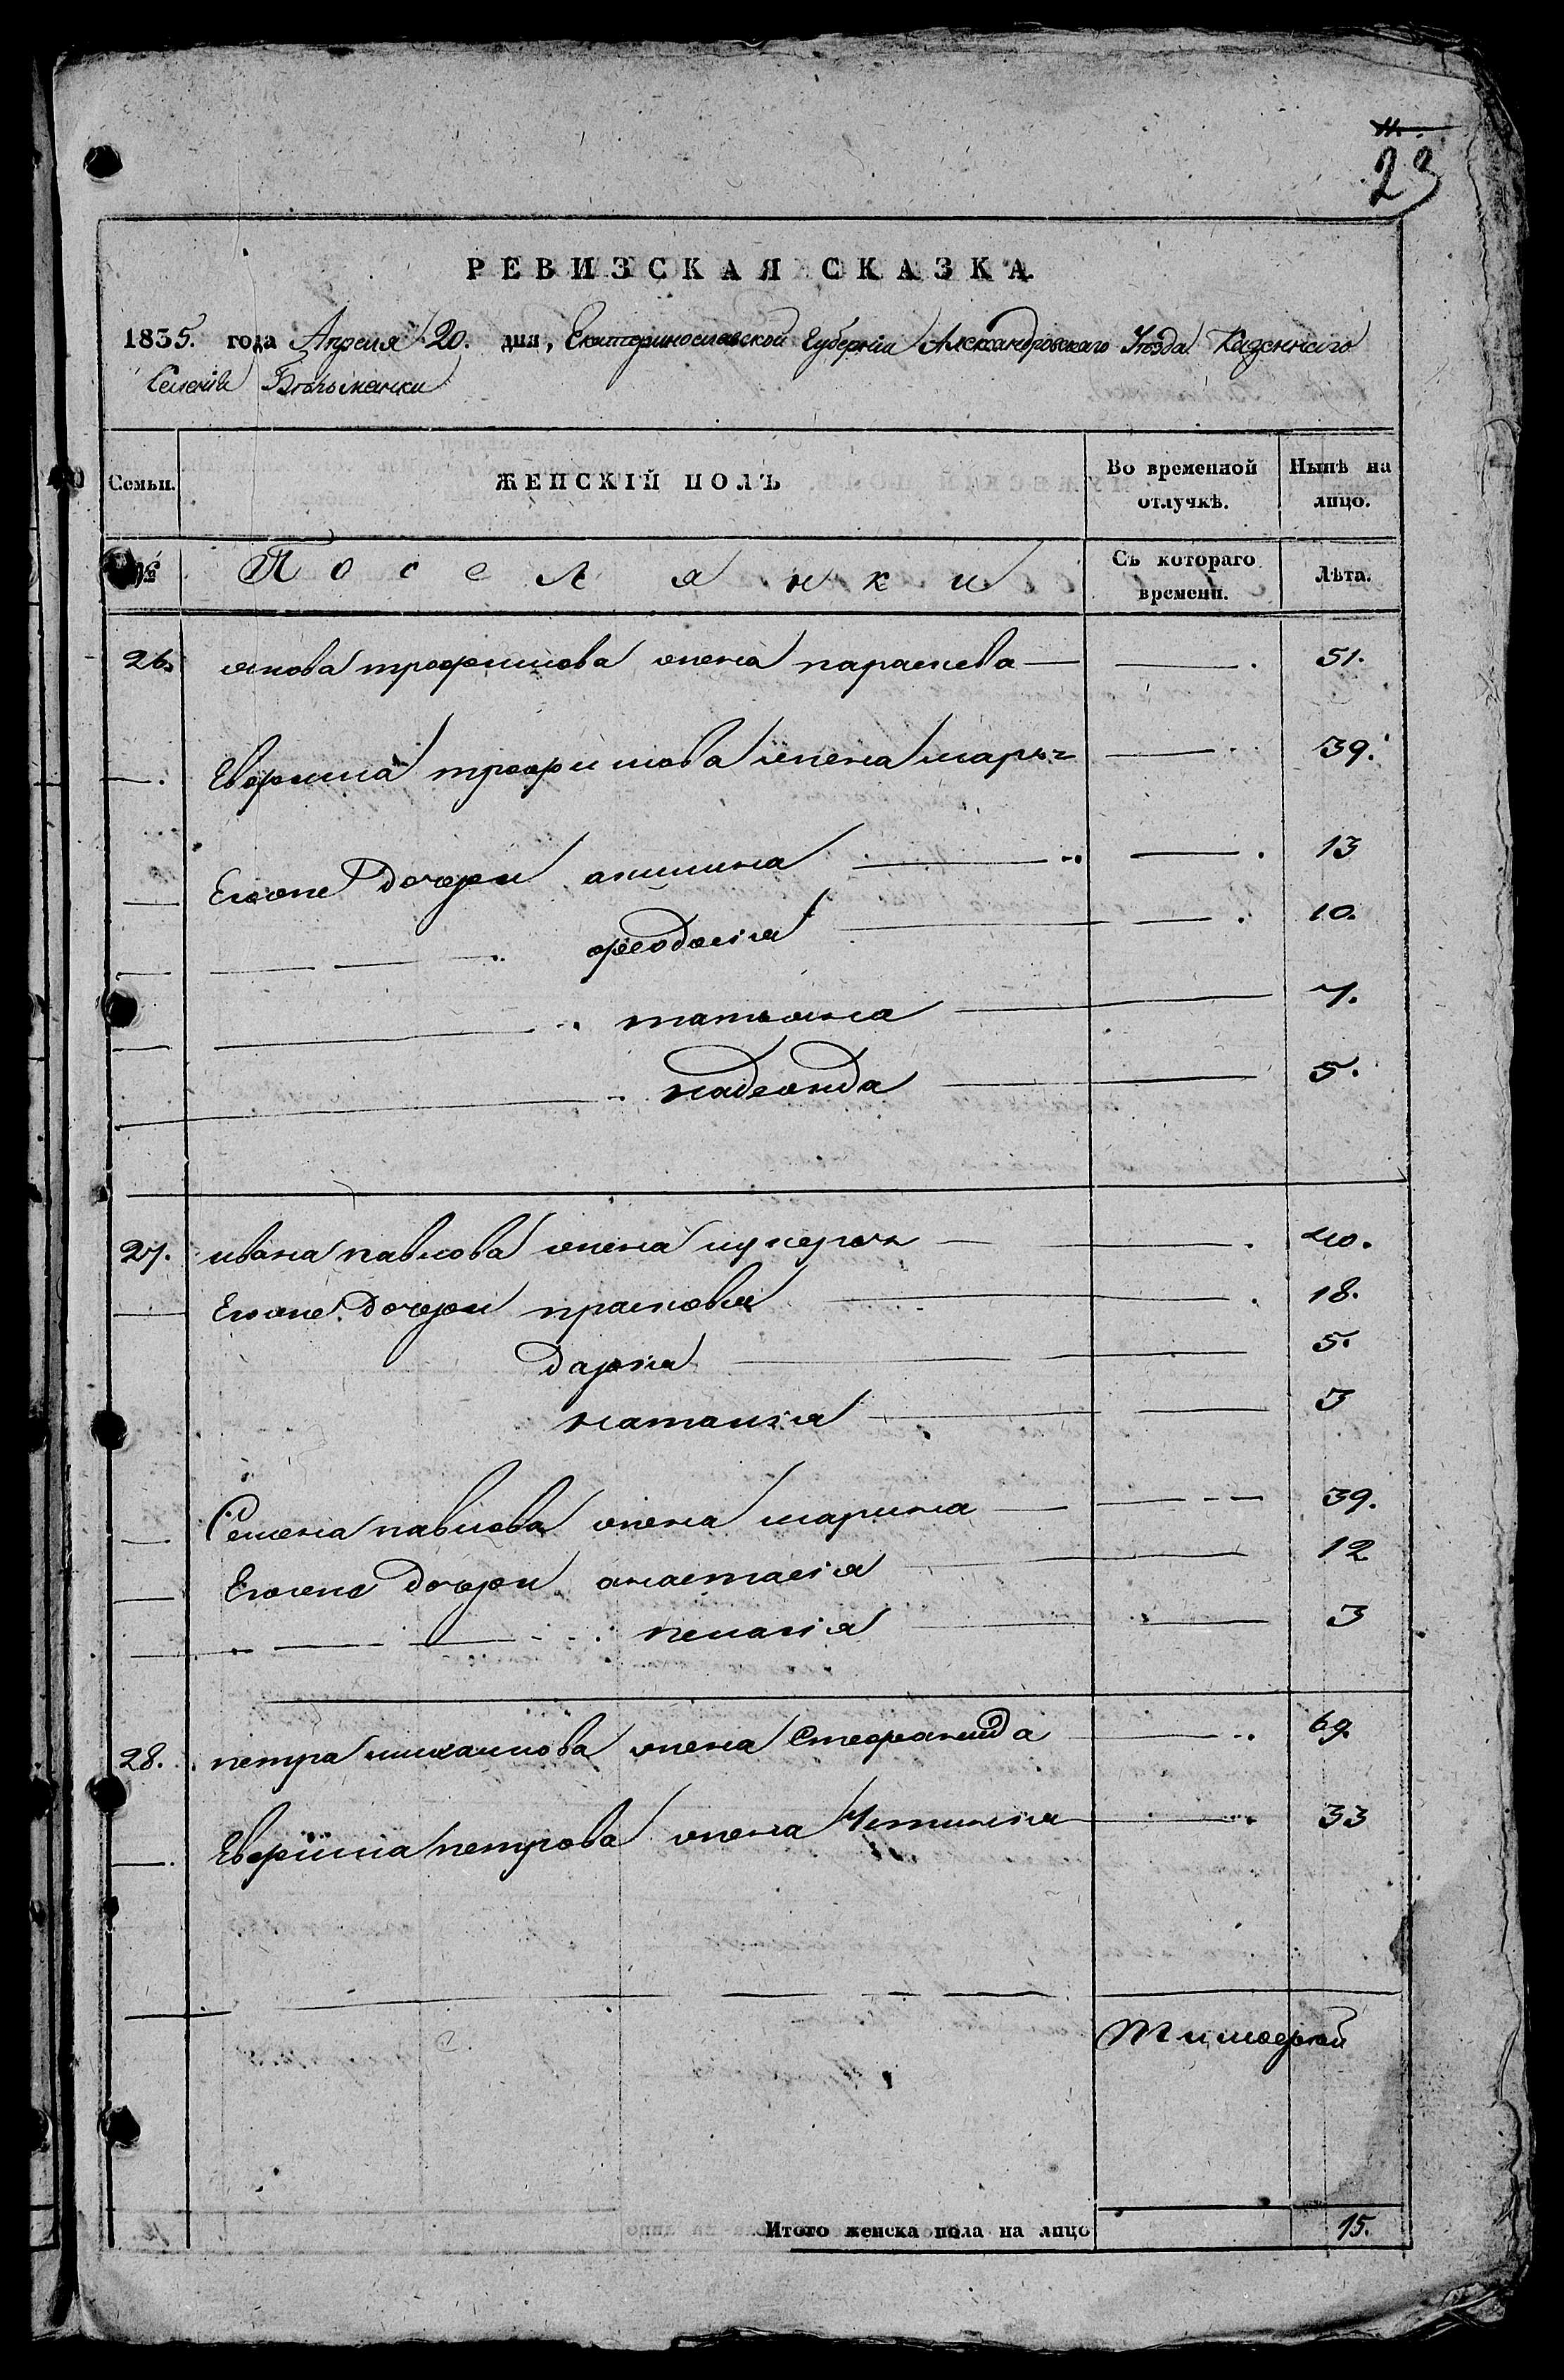 11.
23
РЕВИЗСКАЯ СКАЗКА.
1835. года Апреля 20. дня, Екатеринославской Губернии Александровскаго Уезда Казеннаго
Селения
Семьи. ЖЕНСКІЙ ПОЛЪ Во временной отлучкѣ. Нынѣ на лицо.
№ Поселянки Съ котораго времени. Лѣта.
26. якова трофимова жена параскева 51.
Евфима трофимова жена марья 39.
Егоже дочери акилина 13
феодосія 10.
татьяна 7.
надежда 5.
27. ивана павлова жена гликерья 40.
Егоже дочери прасковья 18.
дарья 5.
наталія 3
Семена павлова жена марина 39.
Егоже дочери анастасія 12
пелагія 3
28. петра михайлова жена Стефанида 69.
Евфима петрова жена Устинья 33
Тимофей
Итого женска пола на лицо 15.